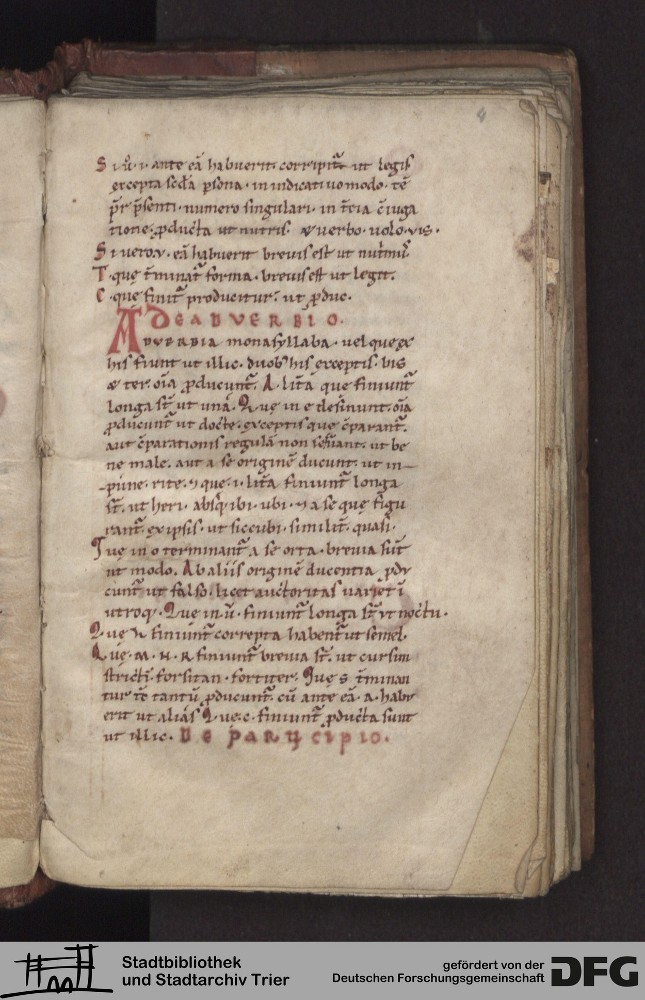 4
Si ũ · i · ante eã habuerit · corripit̃ ut legis
excepta scd̃a p̃sona · in indicativo modo · tẽ
p̃r p̃senti · numero singulari · in t̃cia c̃iuga
tione · ꝓducta ut nutris · & verbo · volo · vis ·
Si vero · v · eã habuerit brevis est ut
T · quę t̃minat̃ forma · brevis est ut legit ·
C · que finit̃ producitur · ut ꝓduc ·
DE ADVERBIO ·
ADVERBIA monasyllaba · vel que ex
his fiunt ut illic · duob; his exceptis · bis
& ter · oĩa ꝓducunt̃ · A · lit̃a que finiunt̃
longa st̃ ut unã · Quę in e desinunt · oĩa
ꝓducunt̃ ut docte · exceptis que c̃parant̃ ·
aut c̃parationis regulã non servant · ut be
ne male · aut a se originẽ ducunt · ut in-
pune · rite · ⁊ que · i · lit̃a finiunt̃ longa
st̃ · ut heri · absq; ibi · ubi · ⁊ a se quę figu
rant̃ · ex ipsis · ut siccubi · similit̃ · quasi ·
Quę in o terminant̃ a se orta · brevia sũt
ut modo · Ab aliis originẽ ducentia ꝓdu
cunt̃ ut falso · licet auctoritas variet ĩ
utroq; · Que in · ũ · finiunt̃ longa st̃ ut noctu ·
Quę L finiunt̃ correpta habent̃ ut semel ·
Quę · M · N · R finiunt̃ brevia st̃ · ut cursim
strictĩ · forsitan · fortiter · Quę S t̃minan
tur tc̃ tantũ ꝓducunt̃ · cũ ante eã · a · habu
erit ut aliás Que · c · finiunt̃ ꝓducta sunt
ut illic · DE PARTICIPIO ·
Stadtbibliothek
und Stadtarchiv Trier
gefördert von der
Deutschen Forschungsgemeinschaft
DFG